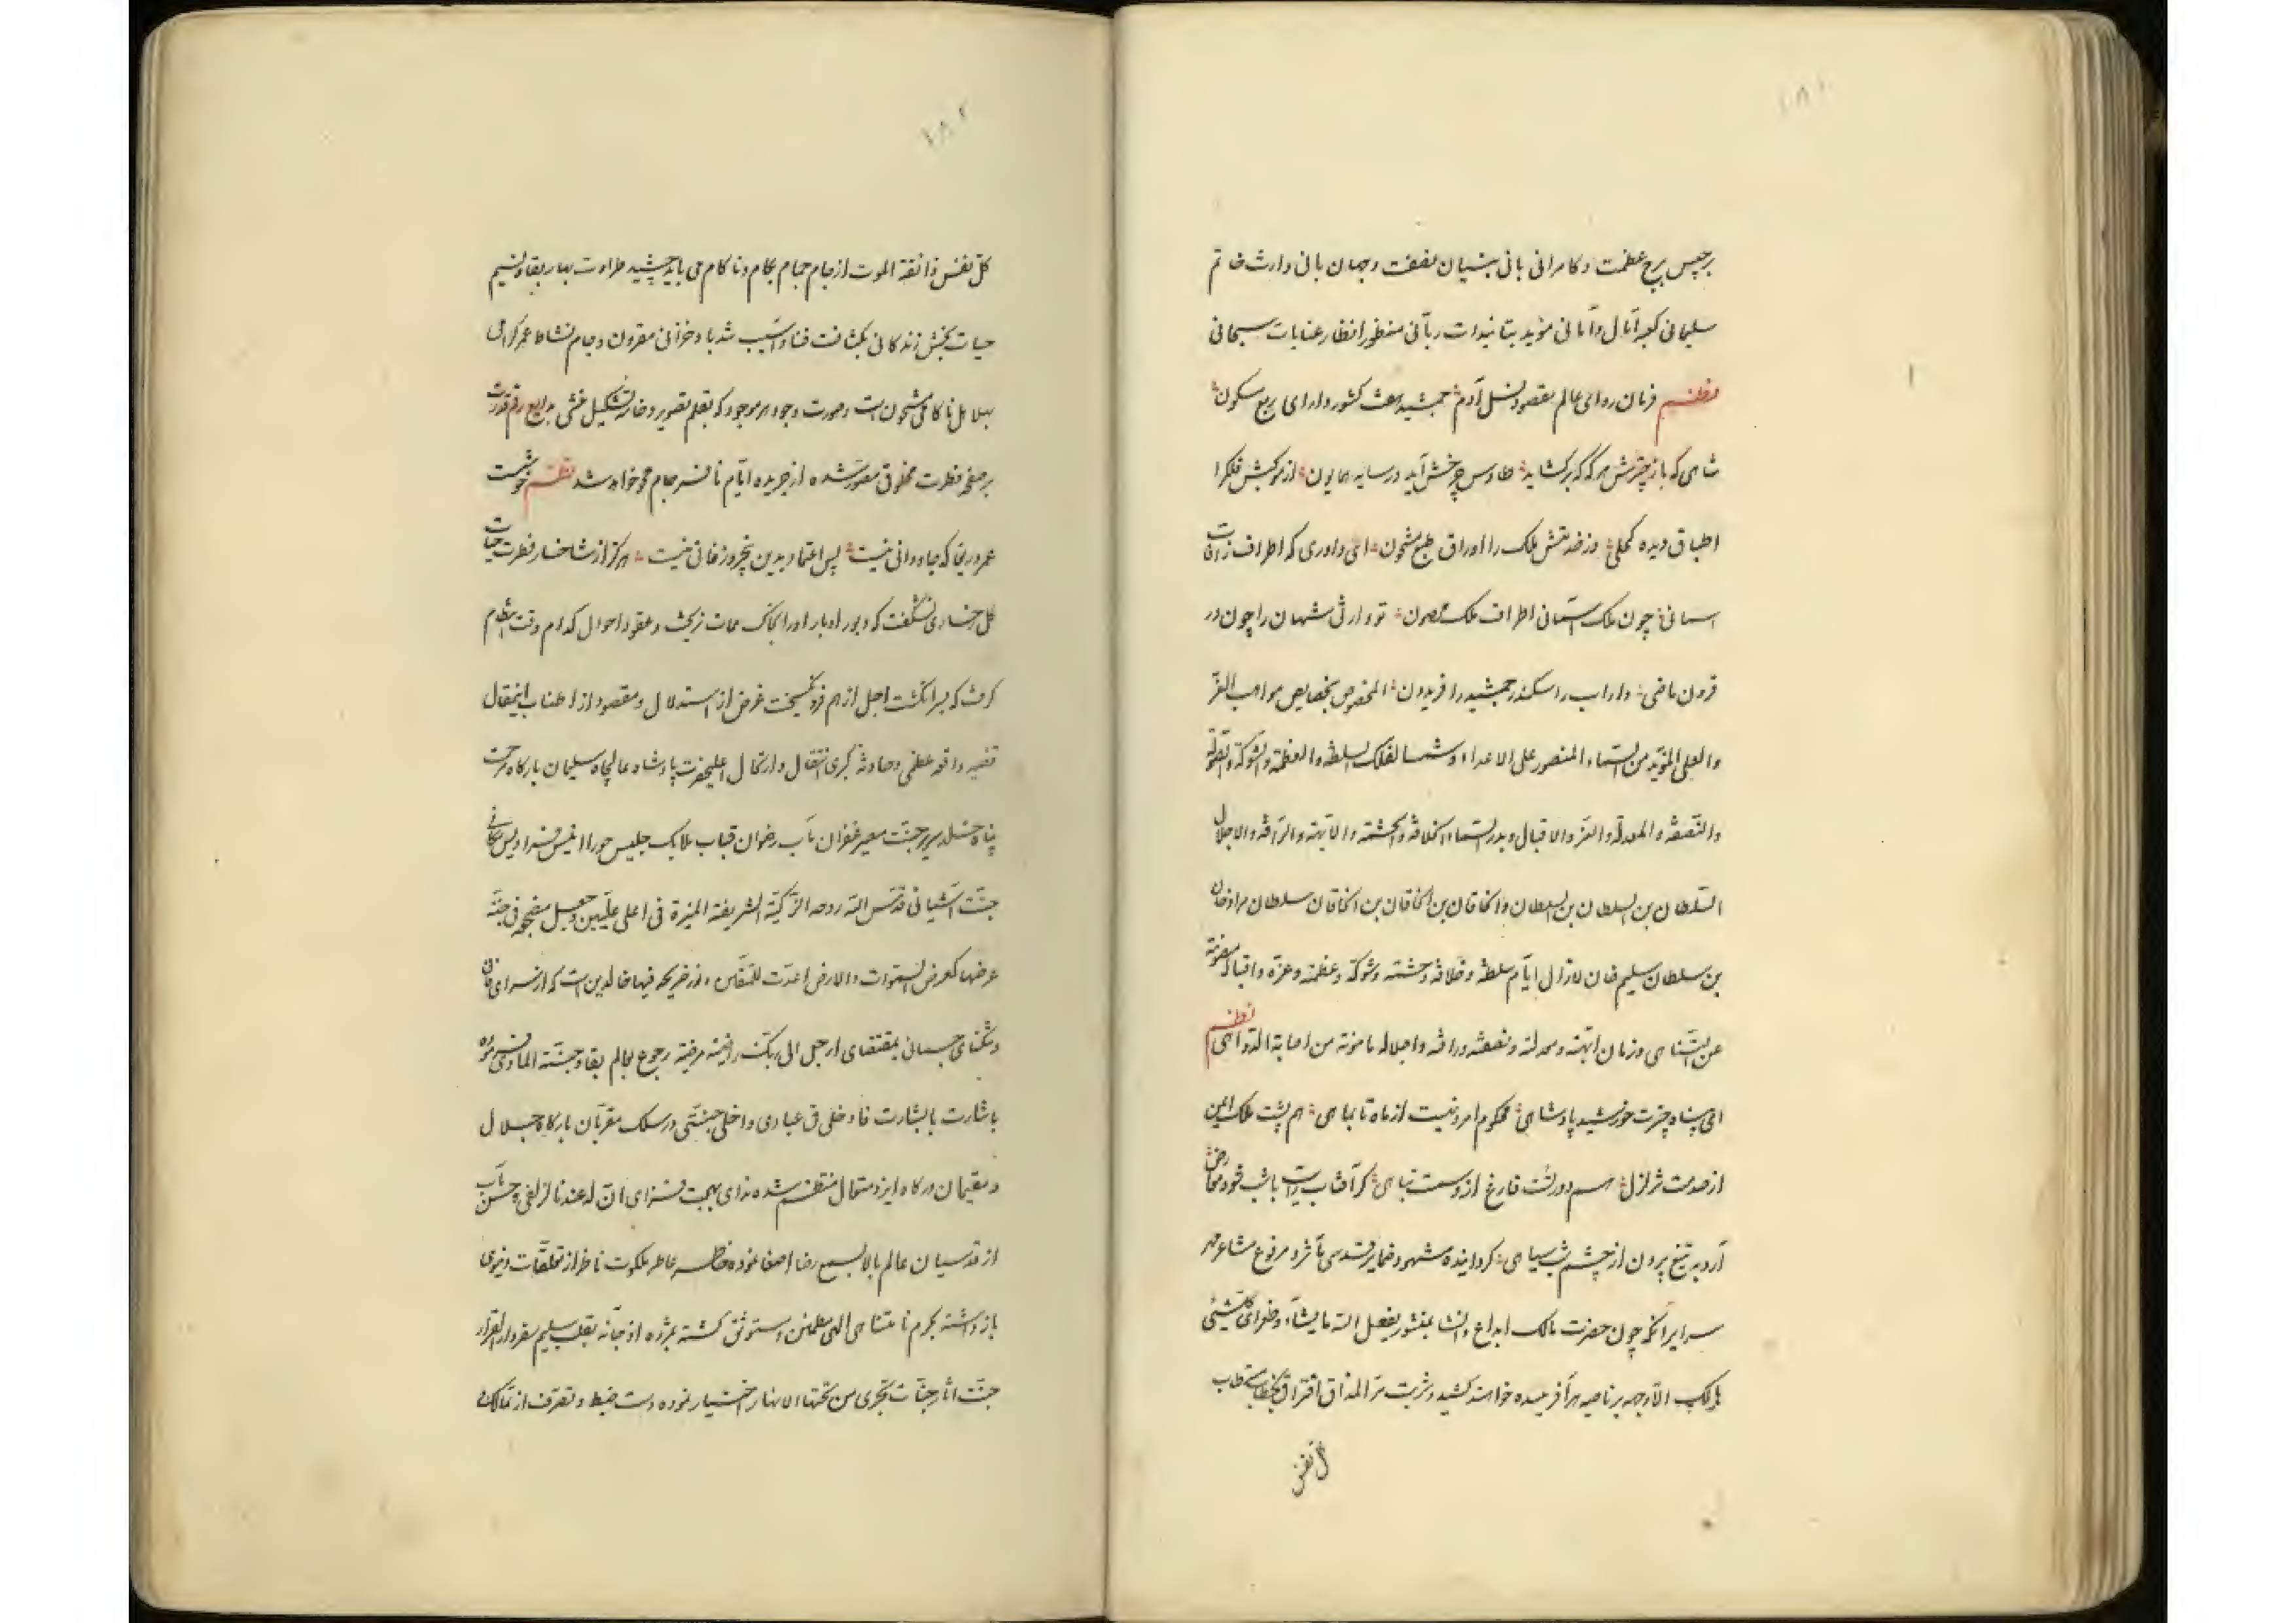 ۱۸۱
برجیس برج عظمت و کامرانی بانی بنیان نصفت و جهان بانی وارث خاتم
سلیمانی کعبه آمال و آمانی مؤید بتائیدات ربّانی منظور انظار عنایات سبحانی
نظم فرمان روای عالم مقصود نسل آدم جمشید هفت کشور دارای ربع مسکون
شاهی که باز چترش هر که که برکشاید طاوس چرخش آید در سایه همایون از موکبش فلک را
اطباق دیده کحلی وز خدمتش ملک را اوراق طبع مشحون ای داوری که اطراف ز آفات
اسمانی چون ملک آسمانی اطراف ملک مصون تو وارثی شهان را چون در
قرون ماضی داراب را سکندر جمشید را فریدون المخصوص بخصایص مواهب العزّ
والعلی المؤیّد من السماء المنصور علی الاعداء و شمسا لفلک السلطنة والعظمة والشوکة و
والنّصفة والمعدلة والعزّ والاقبال و بدر السماء الخلافة والحشمة والابّهة والرّافة والاجلال
السّلطان بن السلطان بن السلطان والخاقان بن الخاقان بن الخاقان سلطان مرادخان
بن سلطان سلیم خان لازال ایّام سلطنة و خلافة و حشمته و شوکة و عظمة و عزّه و اقباله مصونة
عن التّناهی و زمان ابّهته و معدلته و نصفته و رافته و اجلاله مامونة من اصابة الدّواهی نظم
ای پناه چترت خورشید پادشاهی محکوم امر و نهیت از ماه تا بماهی هم پشت ملک ایمن
از صدمت تزلزل هم دورلت فارغ از وصمت تباهی کر آفتاب رایت باشب شود
آرد به تیغ بیرون از چشم شب سیاهی کردانیده مشهود ضمایر قدسی مآثر و مرفوع مشاعر
سرایر آنکه چون حضرت مالک ابداع و انشا بمنشور یفعل الله ما یشاء و طغرای کل شیئی
هالک الّا وجهه بر ناصیه هر آفریده خواهند کشید و شربت مرّ المذاق افتراق بخطاب
کل نفس
۱۸۲
کلّ نفس ذائقة الموت از جام حمام بکام و ناکام می باید چشید طراوت بهار بقا و نسیم
حیات بخش زندکانی بکثافت فنا و آسیب تند باد خزانی مقرون و جام نشاط عمر کرامی
بهلاهل ناکامی مشحون است و صورت وجود هر موجود که بقلم تصویر و خامه تشکیل منشی بدایع رقم قدرت
بر صفحه فطرت مخلوق مصوّر شده از جریده ایّام نافرجام محو خواهد شد نظم خوشست
عمر دریغا که جاودانی نیست پس اعتماد بدین پنجروز فانی نیست هرکز از شاخسار فطرت حیات
کل رخساری نشکفت که دبور ادبار او را بخاک ممات نریخت و عقود احوال کدام وقت انتظام
کرفت که سر انکشت اجل از هم فرو نکسیخت غرض از استدلال و مقصود از اطناب اینمقال
قضیه واقعه عظمی و حادثه کبری انتقال و ارتحال اعلیحضرت پادشاه عالیجاه سلیمان بارکاه مرحمت
پناه خلد سریر جنّت مصیر غفران مآب رضوان قباب ملایک جلیس حورا انیس فرادیس مکانی
جنّت آشیانی قدّس الله روحه الزّکیّة الشریفة المنیرة فی اعلی علّیین و جعل مضجعه فی جنّة
عرضها کعرض السّموات والارض اعدّت للمتّقین از فریحه فیها خالدین است که از سرای فانی
و تنکنای جسمانی بمقتضای ارجعی الی ربّک راضیة مرضیة رجوع بعالم بقا و جنّة المأوی
باشارت بابشارت فادخلی فی عبادی وادخلی جنّتی در سلک مقرّبان بارکاه جلال
و مقیمان درکاه ایزد متعال منتظم شده ندای بهجت فزای انّ له عندنا لزلفی و حسن مآب
از قدسیان عالم بالا بسمع رضا اصغا نموده خاطر عاطر ملکوت ناظر از تعلّقات دنیوی
باز داشته بکرم نامتناهی الهی مطمئن و مستوثق کشته بمژده اذ جآء بقلب سلیم سفر دار القرار
جنّت آثار جنّات تجری من تحتها الانهار اختیار نموده دست ضبط و تصرف از ممالک